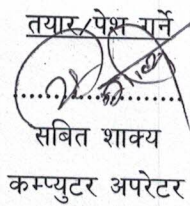 तयार/पेश गर्ने
....................
सबित शाक्य
कम्प्युटर अपरेटर